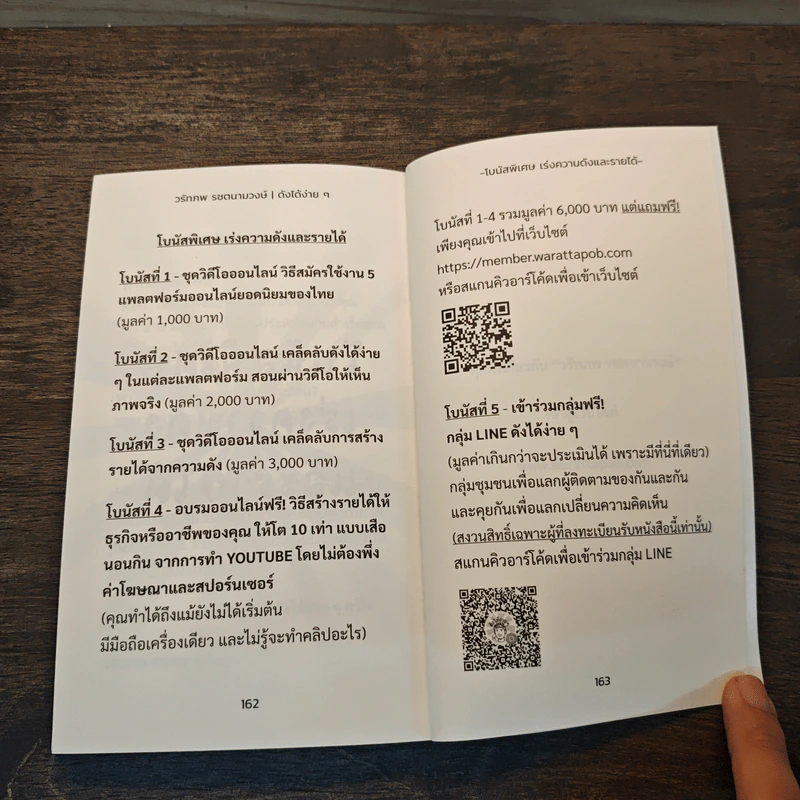 วรัทภพ รชตนามวงษ์ | ดังได้ง่าย ๆ
โบนัสพิเศษ เร่งความดังและรายได้
โบนัสที่ 1 - ชุดวิดีโอออนไลน์ วิธีสมัครใช้งาน 5
แพลตฟอร์มออนไลน์ยอดนิยมของไทย
(มูลค่า 1,000 บาท)
โบนัสที่ 2 - ชุดวิดีโอออนไลน์ เคล็ดลับดังได้ง่าย
ๆ ในแต่ละแพลตฟอร์ม สอนผ่านวิดีโอให้เห็น
ภาพจริง (มูลค่า 2,000 บาท)
โบนัสที่ 3 - ชุดวิดีโอออนไลน์ เคล็ดลับการสร้าง
รายได้จากความดัง (มูลค่า 3,000 บาท)
โบนัสที่ 4 - อบรมออนไลน์ฟรี! วิธีสร้างรายได้ให้
ธุรกิจหรืออาชีพของคุณ ให้โต 10 เท่า แบบเสือ
นอนกิน จากการทำ YOUTUBE โดยไม่ต้องพึ่ง
ค่าโฆษณาและสปอร์นเซอร์
(คุณทำได้ถึงแม้ยังไม่ได้เริ่มต้น
มีมือถือเครื่องเดียว และไม่รู้จะทำคลิปอะไร)
162
-โบนัสพิเศษ เร่งความดังและรายได้-
โบนัสที่ 1-4 รวมมูลค่า 6,000 บาท แต่แถมฟรี!
เพียงคุณเข้าไปที่เว็บไซต์
https://member.warattapob.com
หรือสแกนคิวอาร์โค้ดเพื่อเข้าเว็บไซต์
โบนัสที่ 5 - เข้าร่วมกลุ่มฟรี!
กลุ่ม LINE ดังได้ง่าย ๆ
(มูลค่าเกินกว่าจะประเมินได้ เพราะมีที่นี่ที่เดียว)
กลุ่มชุมชนเพื่อแลกผู้ติดตามของกันและกัน
และคุยกันเพื่อแลกเปลี่ยนความคิดเห็น
(สงวนสิทธิ์เฉพาะผู้ที่ลงทะเบียนรับหนังสือนี้เท่านั้น)
สแกนคิวอาร์โค้ดเพื่อเข้าร่วมกลุ่ม LINE
163